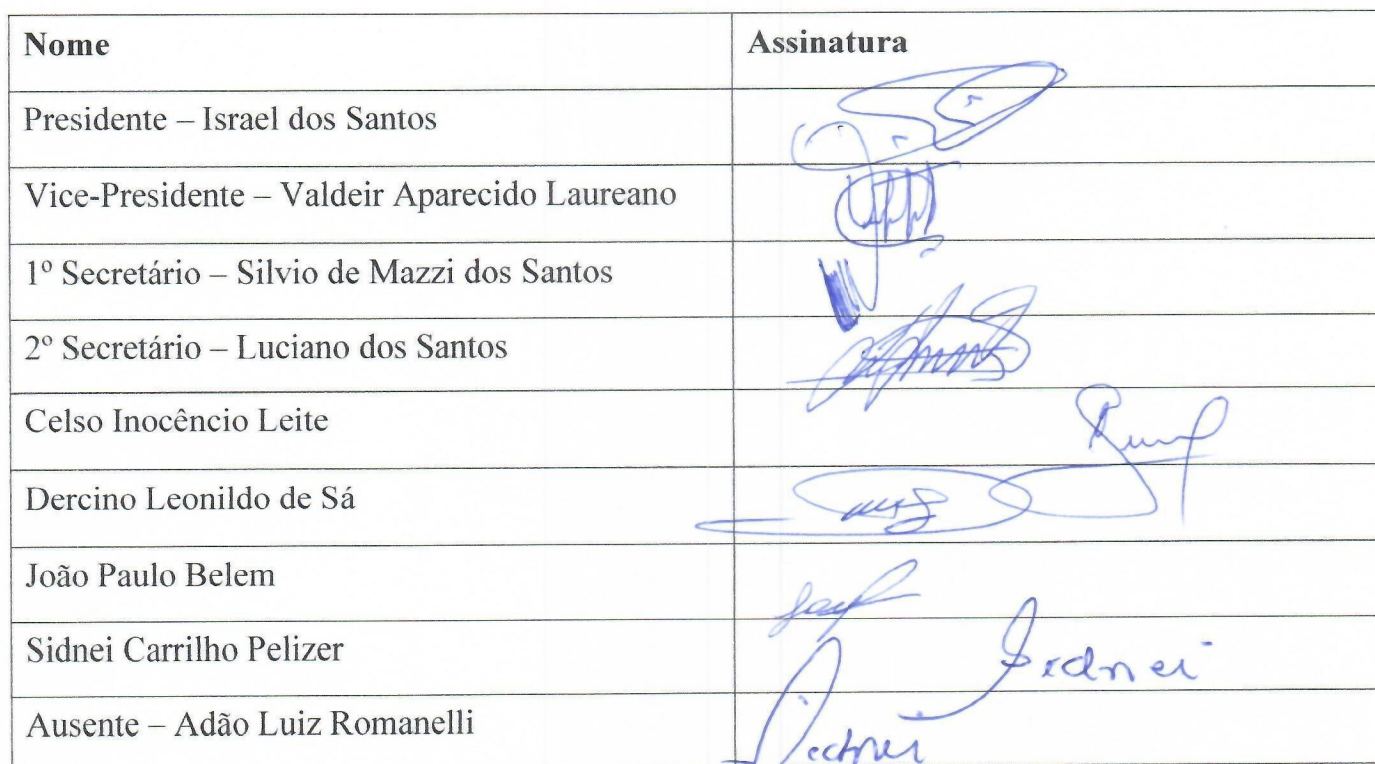 Nome Assinatura
Presidente – Israel dos Santos
Vice-Presidente – Valdeir Aparecido Laureano
1º Secretário – Silvio de Mazzi dos Santos
2º Secretário – Luciano dos Santos
Celso Inocêncio Leite
Dercino Leonildo de Sá
João Paulo Belem
Sidnei Carrilho Pelizer Sidnei
Ausente – Adão Luiz Romanelli